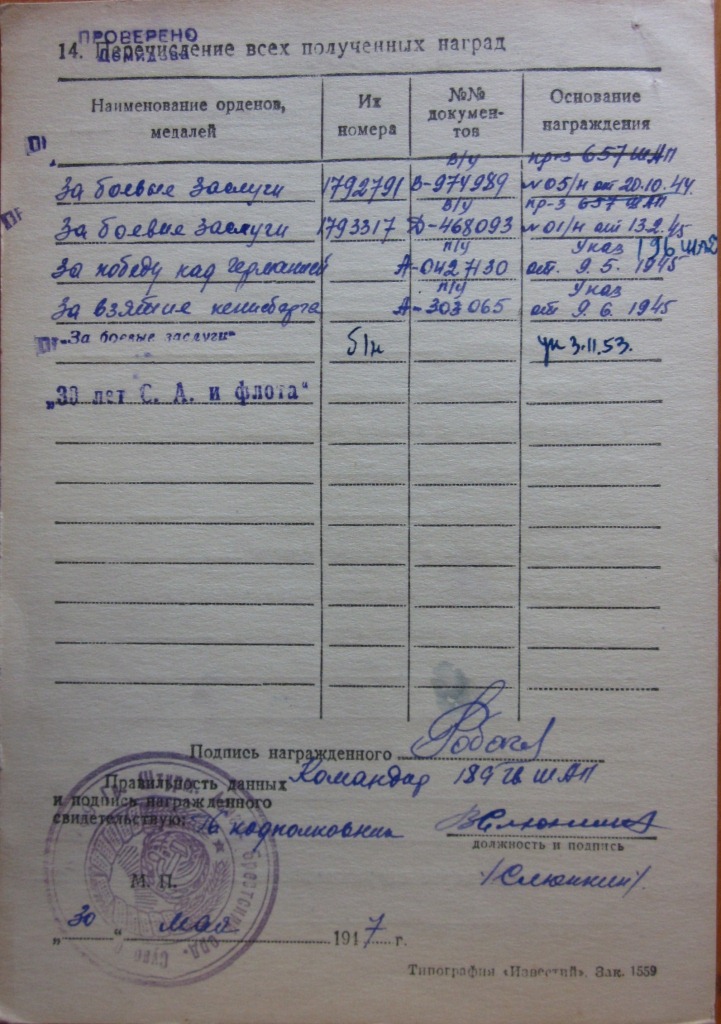 ПРОВЕРЕНО
14. Перечисление всех полученных наград
Наименование орденов, медалей
Их номера
№№ документов
Основание награждения
в/у пр-з 657 ШАП
За боевые заслуги 1792791 В-974989 №05/н от 20.10.44.
в/у пр-з 657 ШАП
За боевые заслуги 1793317 Д-468093 №01/н от 13.2.45
п/у Указ
За победу над Германией А-0427130 от. 9. 5. 1945
п/у Указ
За взятие кенисбарга А-303065 от 9. 6. 1945
„За боевые заслуги" б/н ук 3.11.53.
„30 лет С. А. и флота"
Подпись награжденного
Правильность данных Командир 189 гв ШАП
и подпись награжденного
свидетельствую: Гв подполковник
должность и подпись
М. П. /Слюнкин/.
„30" мая 1917 г.
Типография «Известий». Зак. 1559